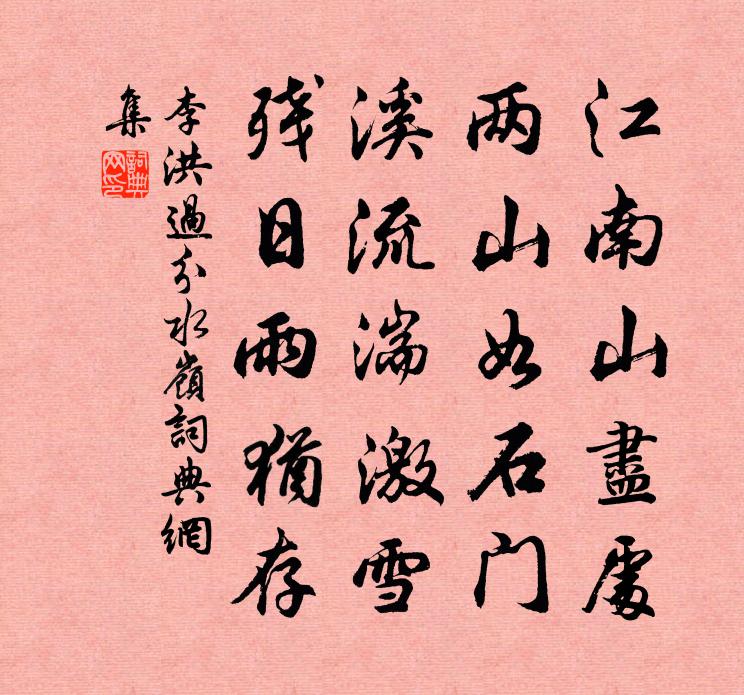 江南山盡處
两山如石门
溪流湍激雪
残日雨猶存
李洪過分水嶺詞典網
集
詞典网印